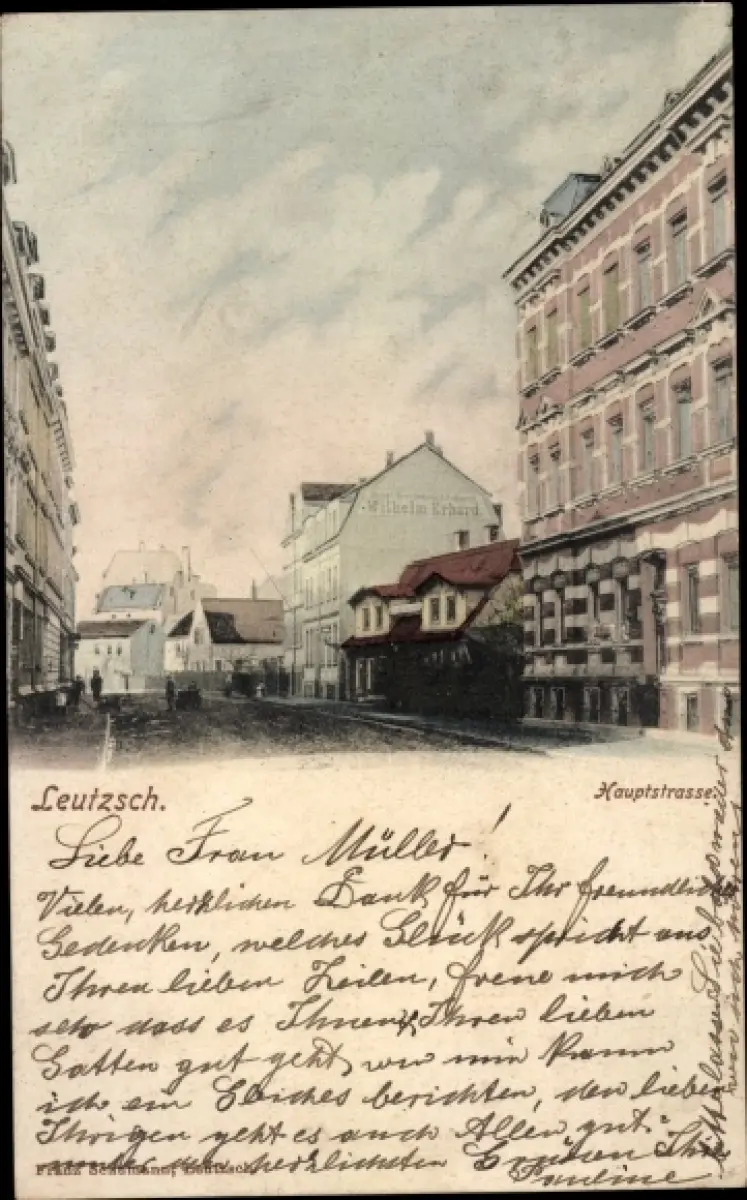 Wilhelm Erhard.
Leutzsch.
Hauptstrasse.
Liebe Frau Müller!
Vielen, herzlichen Dank für Ihr freundliches
Gedenken, welches Glück spricht aus
Ihren lieben Zeilen, freue mich
sehr dass es Ihnen & Ihren lieben
Gatten gut geht, von mir kann
ich ein Gleiches berichten, den lieben
Ihrigen geht es auch Allen gut.
den herzlichsten Grüssen Ihre
Pauline
Franz Schumann, Leutzsch.
lassen Sie bitte wieder
von sich hören